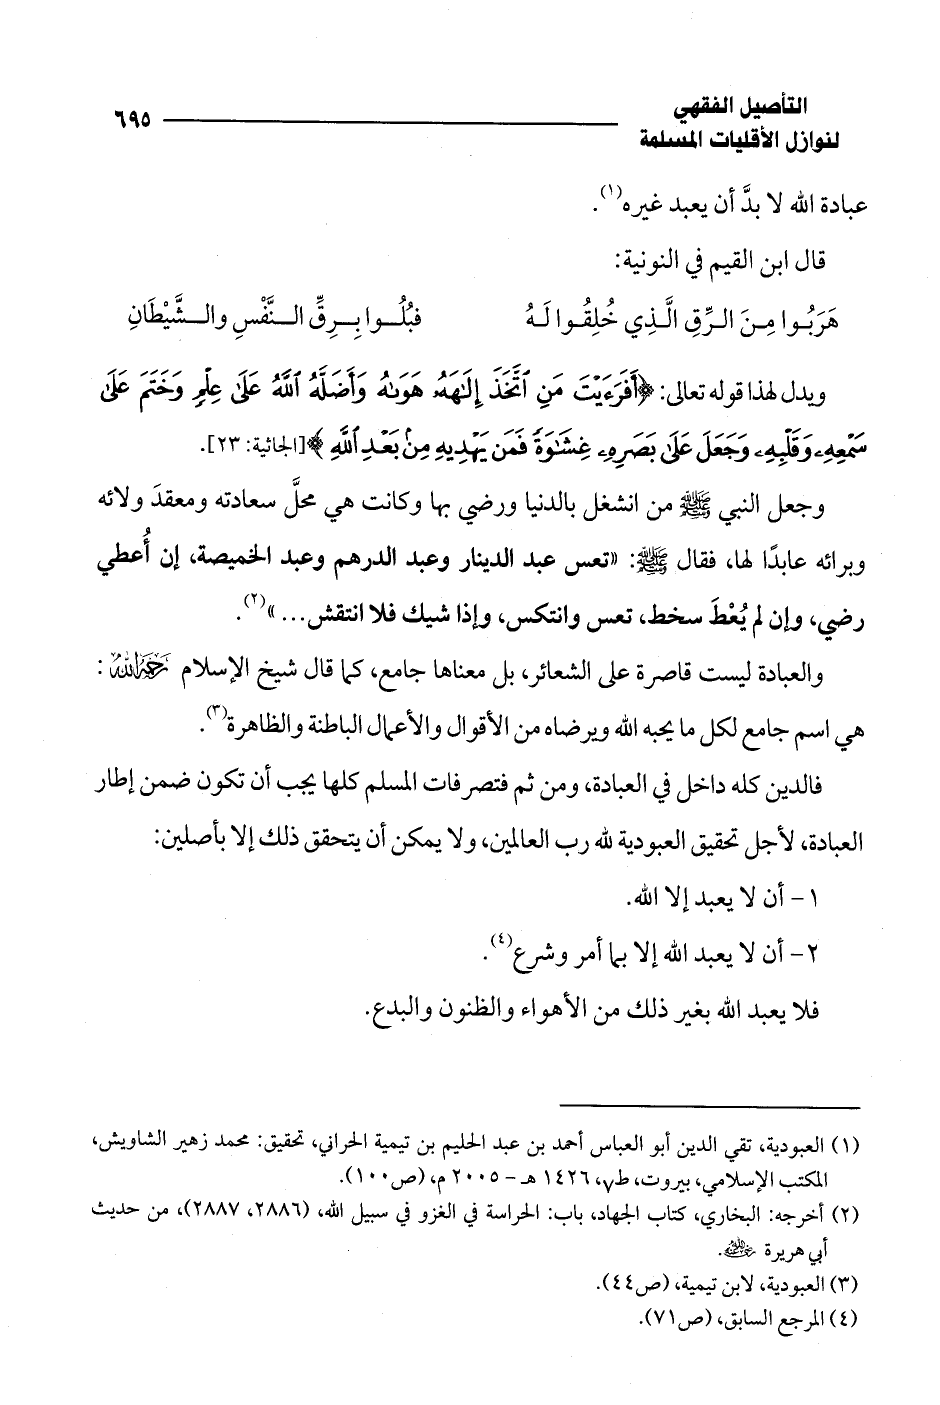 التأصيل الفقهي
لنوازل الأقليات المسلمة
٦٩٥
عبادة الله لا بدَّ أن يعبد غيره(١).
قال ابن القيم في النونية:
هَرَبُوا مِنَ الرِّقِ الَّذِي خُلِقُوا لَهُ فبُلُوا بِرِقِّ النَّفْسِ والشَّيْطَانِ
ويدل لهذا قوله تعالى: ﴿أَفَرَءَيْتَ مَنِ ٱتَّخَذَ إِلَٰهَهُۥ هَوَىٰهُ وَأَضَلَّهُ ٱللَّهُ عَلَىٰ عِلْمٍ وَخَتَمَ عَلَىٰ
سَمْعِهِۦ وَقَلْبِهِۦ وَجَعَلَ عَلَىٰ بَصَرِهِۦ غِشَٰوَةً فَمَن يَهْدِيهِ مِنۢ بَعْدِ ٱللَّهِ﴾ [الجاثية: ٢٣].
وجعل النبي ﷺ من انشغل بالدنيا ورضي بها وكانت هي محلَّ سعادته ومعقدَ ولائه
وبرائه عابدًا لها، فقال ﷺ: «تعس عبد الدينار وعبد الدرهم وعبد الخميصة، إن أُعطي
رضي، وإن لم يُعْطَ سخط، تعس وانتكس، وإذا شيك فلا انتقش...»(٢).
والعبادة ليست قاصرة على الشعائر، بل معناها جامع، كما قال شيخ الإسلام رَحِمَهُ اللَّهُ:
هي اسم جامع لكل ما يحبه الله ويرضاه من الأقوال والأعمال الباطنة والظاهرة(٣).
فالدين كله داخل في العبادة، ومن ثم فتصرفات المسلم كلها يجب أن تكون ضمن إطار
العبادة، لأجل تحقيق العبودية لله رب العالمين، ولا يمكن أن يتحقق ذلك إلا بأصلين:
١- أن لا يعبد إلا الله.
٢- أن لا يعبد الله إلا بما أمر وشرع(٤).
فلا يعبد الله بغير ذلك من الأهواء والظنون والبدع.
(١) العبودية، تقي الدين أبو العباس أحمد بن عبد الحليم بن تيمية الحراني، تحقيق: محمد زهير الشاويش،
المكتب الإسلامي، بيروت، ط٧، ١٤٢٦ هـ - ٢٠٠٥ م، (ص١٠٠).
(٢) أخرجه: البخاري، كتاب الجهاد، باب: الحراسة في الغزو في سبيل الله، (٢٨٨٦، ٢٨٨٧)، من حديث
أبي هريرة رَضِيَ اللَّهُ عَنْهُ.
(٣) العبودية، لابن تيمية، (ص٤٤).
(٤) المرجع السابق، (ص٧١).